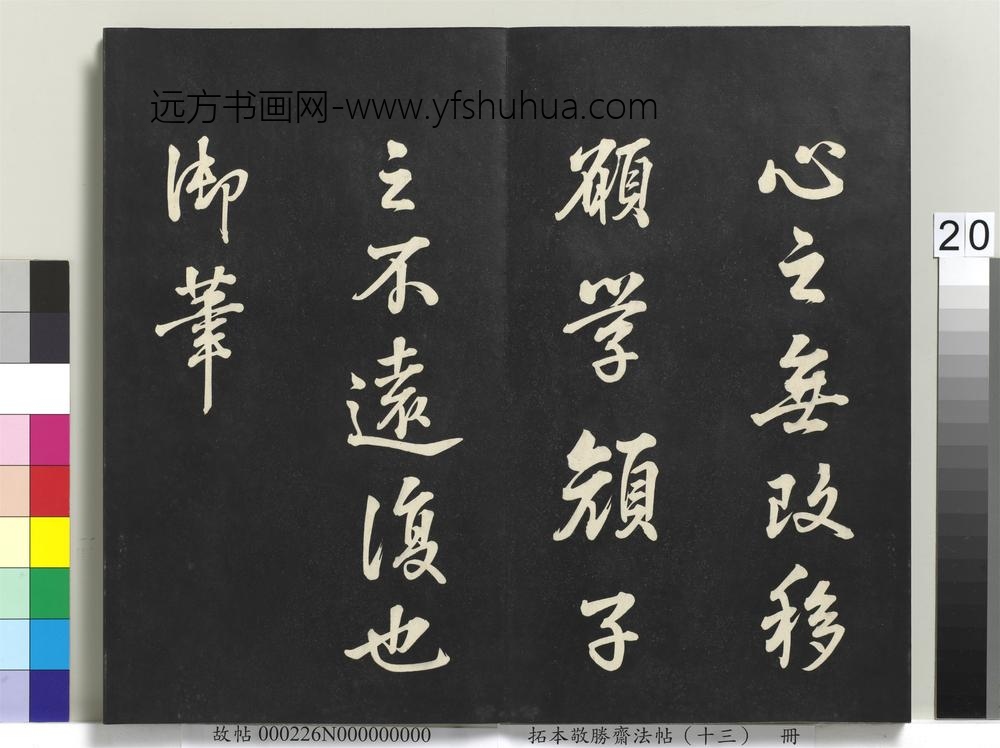 远方书画网-www.yfshuhua.com
心之無改移
願学顔子
之不遠復也
御筆
20
故帖 000226N000000000
拓本敬勝齋法帖（十三） 冊